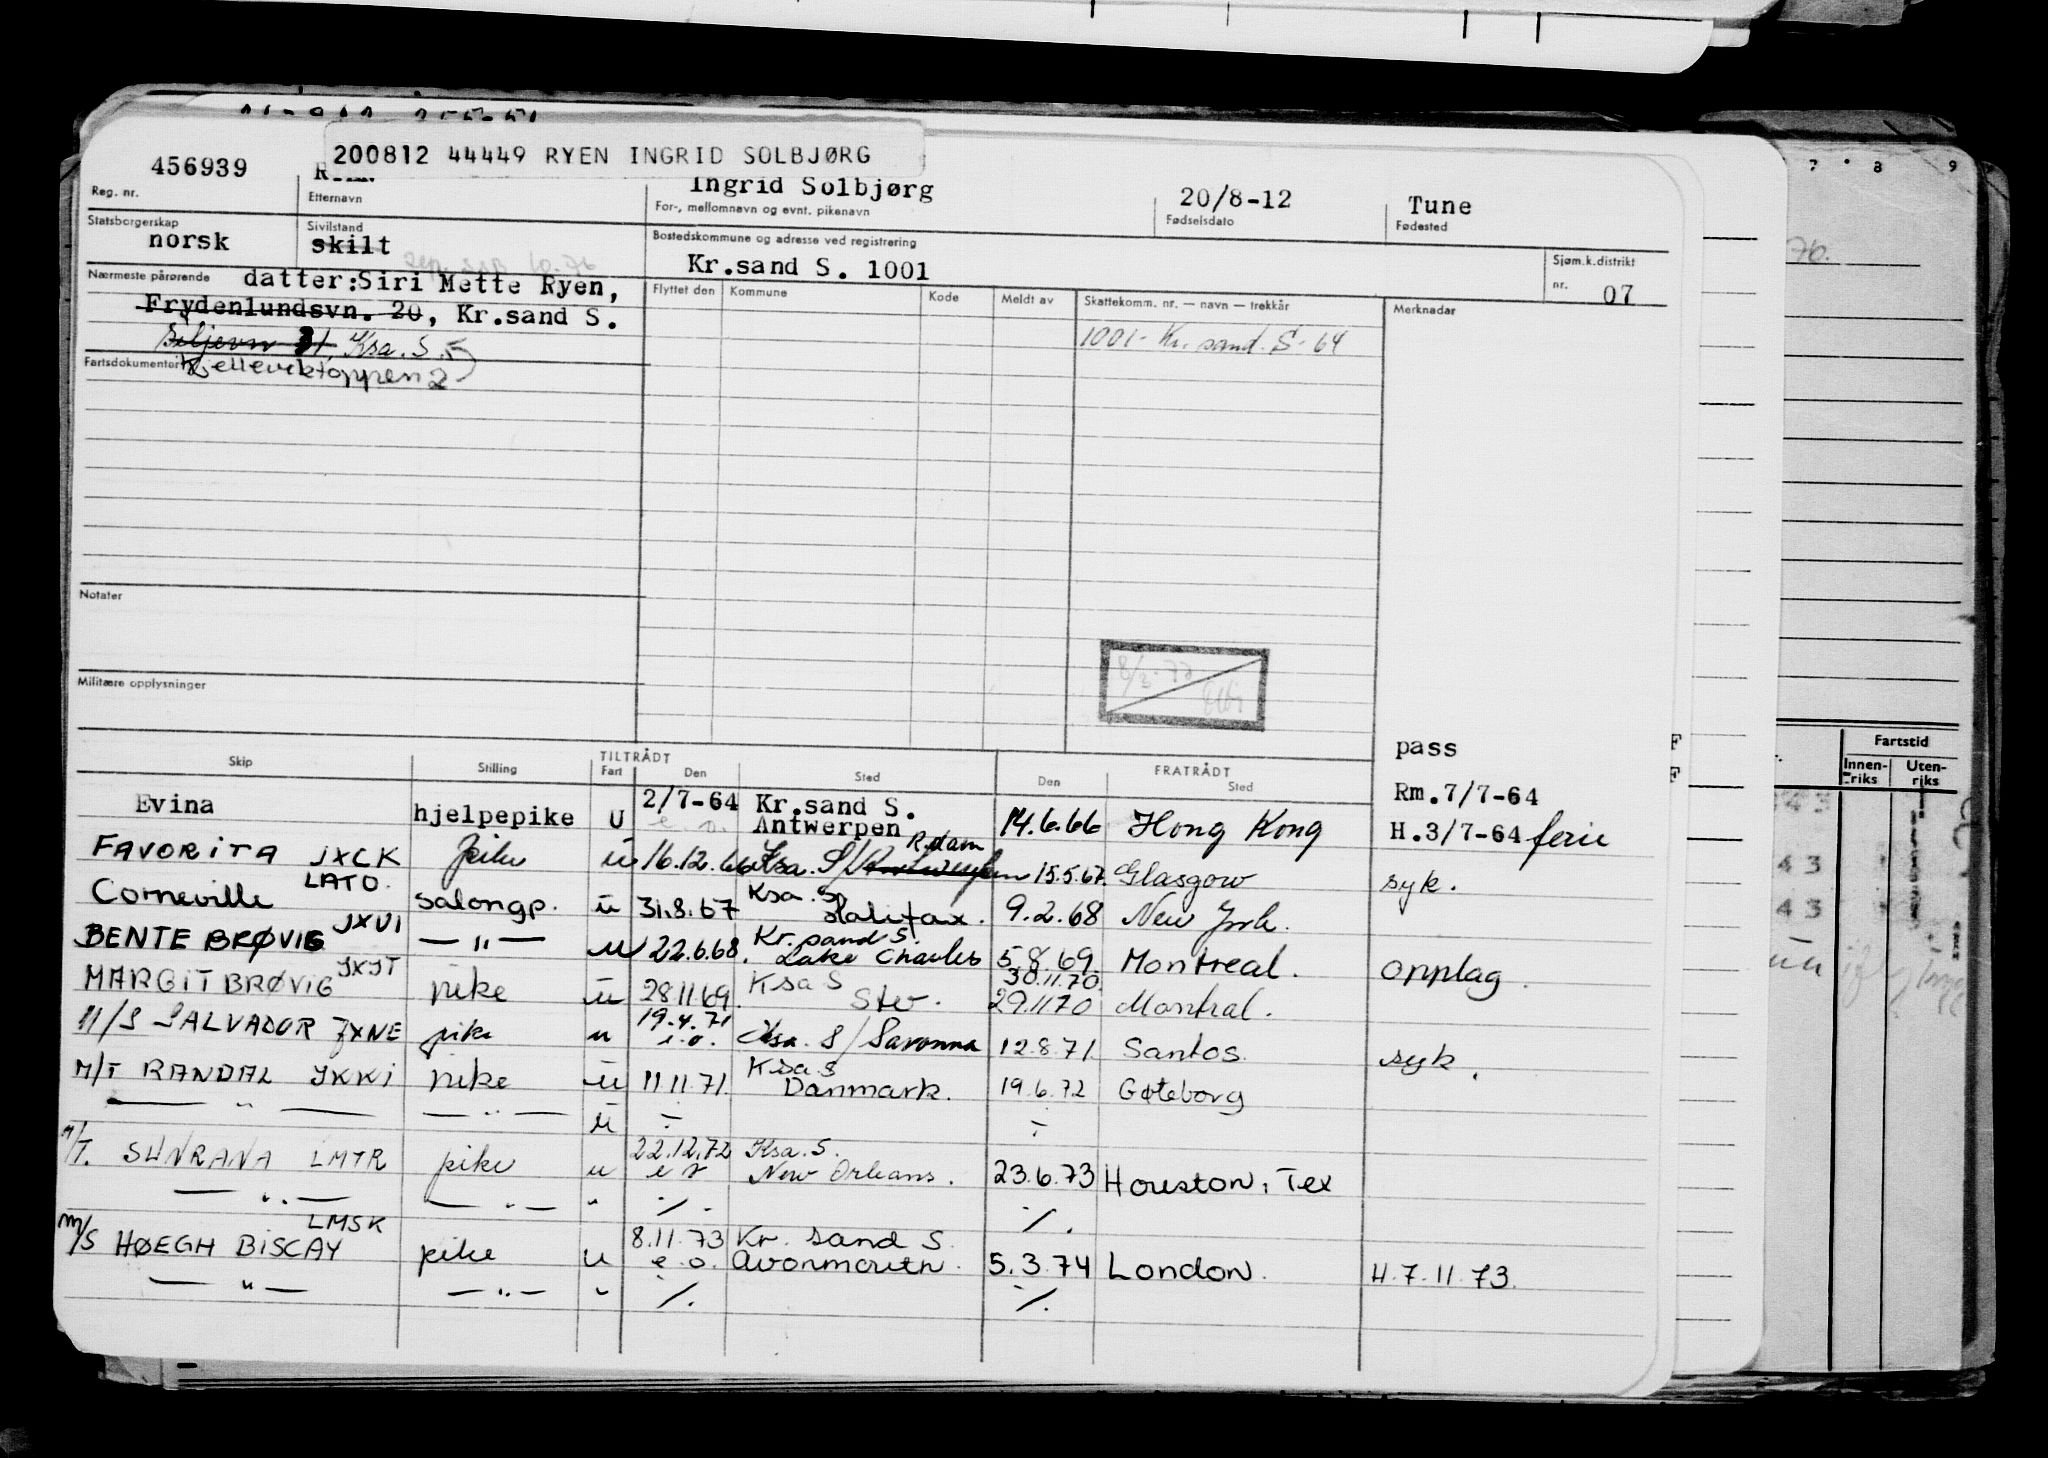 200812 44449 RYEN INGRID SOLBJØRG
456939
Reg. nr.
Etternavn
Ingrid Solbjørg
For-, mellomnavn og evnt. pikenavn
20/8-12
Fødselsdato
Tune
Fødested
Statsborgerskap
norsk
Sivilstand
skilt
Bostedskommune og adresse ved registrering
Kr.sand S. 1001
Sjøm.k.distrikt
nr. 07
Nærmeste pårørende datter:Siri Mette Ryen,
Frydenlundsvn. 20, Kr.sand S.
31, Ksa. S. 5
Fartsdokumenter
Flyttet den Kommune Kode Meldt av Skattekomm. nr. — navn — trekkår Merknadar
1001- Kr. sand. S- 64
Notater
Militære opplysninger
TILTRÅDT FRATRÅDT
Skip Stilling Fart Den Sted Den Sted
pass
Rm.7/7-64
Evina hjelpepike U 2/7-64 Kr.sand S. Antwerpen 14.6.66 Hong Kong H.3/7-64 ferie
FAVORITA JXCK pike u 16.12.66 Ksa. S/ R.dam 15.5.67. Glasgow syk.
Corneville LATO. salongp. u 31.8.67 Ksa. S. Halifax. 9.2.68 New York.
BENTE BRØVIG JXUI — " — u 22.6.68. Kr. sand S. Lake Charles 5.8.69. Montreal. opplag.
MARGIT BRØVIG JXJT pike u 28.11.69. Ksa S Stv. 30.11.70. 29.11.70 Montreal.
M/S SALVADOR JXNE pike u 19.4.71 e.o. Ksa. S/Savonna 12.8.71. Santos. syk.
M/T RANDAL JKKI pike u 11.11.71. Ksa S Danmark. 19.6.72 Gøteborg
— " — — " — u ÷ ÷
M/T. SUNRANA LMTR pike u 22.12.72 Ksa. S. New Orleans. 23.6.73 Houston, Tex
— " — — " — " ./. ./.
M/S HØEGH BISCAY LMSK pike u 8.11.73 e.o. Kr. sand S. Avonmouth. 5.3.74 London. H.7.11.73.
— " — — " — " ./. ./.
7 8 9
Fartstid
Innen-riks Uten-riks